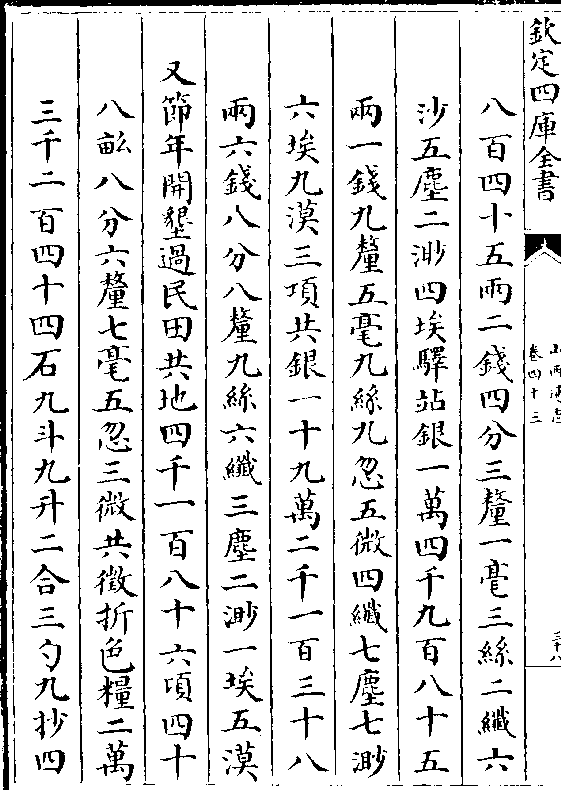 欽定四庫全書
卷四十三
八百四十五兩二錢四分三釐一毫三絲二纖六
沙五塵二渺四埃驛站銀一萬四千九百八十五
兩一錢九釐五毫九絲九忽五微四纖七塵七渺
六埃九漠三項共銀一十九萬二千一百三十八
兩六錢八分八釐九絲六纖三塵二渺一埃五漠
又節年開墾過民田共地四千一百八十六頃四十
八畝八分六釐七毫五忽三微共徵折色糧二萬
三千二百四十四石九斗九升二合三勺九抄四